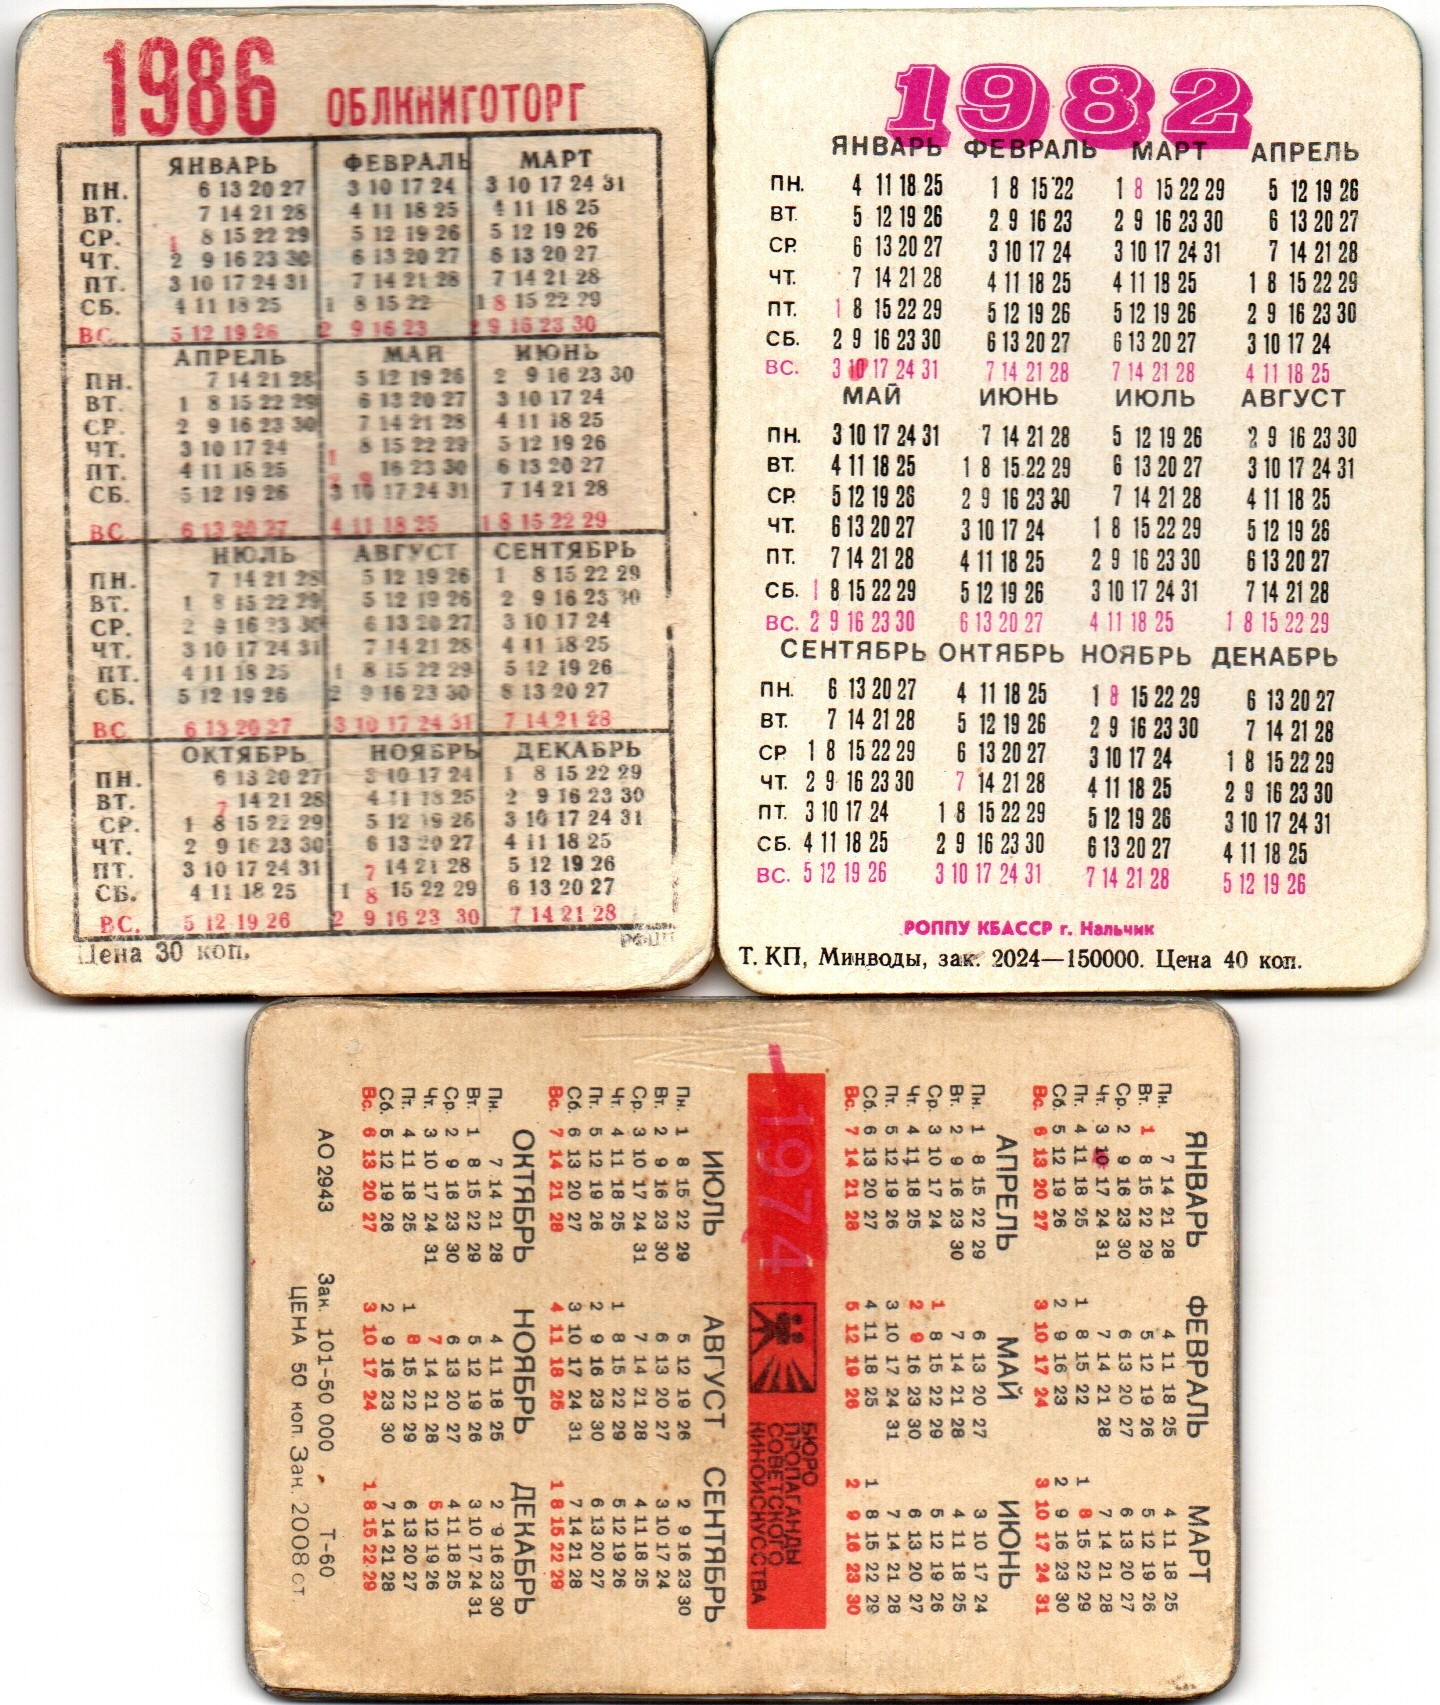 1986 ОБЛКНИГОТОРГ
ЯНВАРЬ ФЕВРАЛЬ МАРТ
ПН. 6 13 20 27 3 10 17 24 3 10 17 24 31
ВТ. 7 14 21 28 4 11 18 25 4 11 18 25
СР. 1 8 15 22 29 5 12 19 26 5 12 19 26
ЧТ. 2 9 16 23 30 6 13 20 27 6 13 20 27
ПТ. 3 10 17 24 31 7 14 21 28 7 14 21 28
СБ. 4 11 18 25 1 8 15 22 1 8 15 22 29
ВС. 5 12 19 26 2 9 16 23 2 9 16 23 30
АПРЕЛЬ МАЙ ИЮНЬ
ПН. 7 14 21 28 5 12 19 26 2 9 16 23 30
ВТ. 1 8 15 22 29 6 13 20 27 3 10 17 24
СР. 2 9 16 23 30 7 14 21 28 4 11 18 25
ЧТ. 3 10 17 24 1 8 15 22 29 5 12 19 26
ПТ. 4 11 18 25 2 9 16 23 30 6 13 20 27
СБ. 5 12 19 26 3 10 17 24 31 7 14 21 28
ВС. 6 13 20 27 4 11 18 25 1 8 15 22 29
ИЮЛЬ АВГУСТ СЕНТЯБРЬ
ПН. 7 14 21 28 5 12 19 26 1 8 15 22 29
ВТ. 1 8 15 22 29 5 12 19 26 2 9 16 23 30
СР. 2 9 16 23 30 6 13 20 27 3 10 17 24
ЧТ. 3 10 17 24 31 7 14 21 28 4 11 18 25
ПТ. 4 11 18 25 1 8 15 22 29 5 12 19 26
СБ. 5 12 19 26 2 9 16 23 30 6 13 20 27
ВС. 6 13 20 27 3 10 17 24 31 7 14 21 28
ОКТЯБРЬ НОЯБРЬ ДЕКАБРЬ
ПН. 6 13 20 27 3 10 17 24 1 8 15 22 29
ВТ. 7 14 21 28 4 11 18 25 2 9 16 23 30
СР. 1 8 15 22 29 5 12 19 26 3 10 17 24 31
ЧТ. 2 9 16 23 30 6 13 20 27 4 11 18 25
ПТ. 3 10 17 24 31 7 14 21 28 5 12 19 26
СБ. 4 11 18 25 1 8 15 22 29 6 13 20 27
ВС. 5 12 19 26 2 9 16 23 30 7 14 21 28
Цена 30 коп.
1982
ЯНВАРЬ ФЕВРАЛЬ МАРТ АПРЕЛЬ
ПН. 4 11 18 25 1 8 15 22 1 8 15 22 29 5 12 19 26
ВТ. 5 12 19 26 2 9 16 23 2 9 16 23 30 6 13 20 27
СР. 6 13 20 27 3 10 17 24 3 10 17 24 31 7 14 21 28
ЧТ. 7 14 21 28 4 11 18 25 4 11 18 25 1 8 15 22 29
ПТ. 1 8 15 22 29 5 12 19 26 5 12 19 26 2 9 16 23 30
СБ. 2 9 16 23 30 6 13 20 27 6 13 20 27 3 10 17 24
ВС. 3 10 17 24 31 7 14 21 28 7 14 21 28 4 11 18 25
МАЙ ИЮНЬ ИЮЛЬ АВГУСТ
ПН. 3 10 17 24 31 7 14 21 28 5 12 19 26 2 9 16 23 30
ВТ. 4 11 18 25 1 8 15 22 29 6 13 20 27 3 10 17 24 31
СР. 5 12 19 26 2 9 16 23 30 7 14 21 28 4 11 18 25
ЧТ. 6 13 20 27 3 10 17 24 1 8 15 22 29 5 12 19 26
ПТ. 7 14 21 28 4 11 18 25 2 9 16 23 30 6 13 20 27
СБ. 1 8 15 22 29 5 12 19 26 3 10 17 24 31 7 14 21 28
ВС. 2 9 16 23 30 6 13 20 27 4 11 18 25 1 8 15 22 29
СЕНТЯБРЬ ОКТЯБРЬ НОЯБРЬ ДЕКАБРЬ
ПН. 6 13 20 27 4 11 18 25 1 8 15 22 29 6 13 20 27
ВТ. 7 14 21 28 5 12 19 26 2 9 16 23 30 7 14 21 28
СР 1 8 15 22 29 6 13 20 27 3 10 17 24 1 8 15 22 29
ЧТ. 2 9 16 23 30 7 14 21 28 4 11 18 25 2 9 16 23 30
ПТ. 3 10 17 24 1 8 15 22 29 5 12 19 26 3 10 17 24 31
СБ. 4 11 18 25 2 9 16 23 30 6 13 20 27 4 11 18 25
ВС. 5 12 19 26 3 10 17 24 31 7 14 21 28 5 12 19 26
РОППУ КБАССР г. Нальчик
Т. КП, Минводы, зак. 2024—150000. Цена 40 коп.
ЯНВАРЬ ФЕВРАЛЬ МАРТ
Пн. 7 14 21 28 4 11 18 25 4 11 18 25
Вт. 1 8 15 22 29 5 12 19 26 5 12 19 26
Ср. 2 9 16 23 30 6 13 20 27 6 13 20 27
Чт. 3 10 17 24 31 7 14 21 28 7 14 21 28
Пт. 4 11 18 25 1 8 15 22 1 8 15 22 29
Сб. 5 12 19 26 2 9 16 23 2 9 16 23 30
Вс. 6 13 20 27 3 10 17 24 3 10 17 24 31
АПРЕЛЬ МАЙ ИЮНЬ
Пн. 1 8 15 22 29 6 13 20 27 3 10 17 24
Вт. 2 9 16 23 30 7 14 21 28 4 11 18 25
Ср. 3 10 17 24 1 8 15 22 29 5 12 19 26
Чт. 4 11 18 25 2 9 16 23 30 6 13 20 27
Пт. 5 12 19 26 3 10 17 24 31 7 14 21 28
Сб. 6 13 20 27 4 11 18 25 1 8 15 22 29
Вс. 7 14 21 28 5 12 19 26 2 9 16 23 30
1974
БЮРО
ПРОПАГАНДЫ
СОВЕТСКОГО
КИНОИСКУССТВА
ИЮЛЬ АВГУСТ СЕНТЯБРЬ
Пн. 1 8 15 22 29 5 12 19 26 2 9 16 23 30
Вт. 2 9 16 23 30 6 13 20 27 3 10 17 24
Ср. 3 10 17 24 31 7 14 21 28 4 11 18 25
Чт. 4 11 18 25 1 8 15 22 29 5 12 19 26
Пт. 5 12 19 26 2 9 16 23 30 6 13 20 27
Сб. 6 13 20 27 3 10 17 24 31 7 14 21 28
Вс. 7 14 21 28 4 11 18 25 1 8 15 22 29
ОКТЯБРЬ НОЯБРЬ ДЕКАБРЬ
Пн. 7 14 21 28 4 11 18 25 2 9 16 23 30
Вт. 1 8 15 22 29 5 12 19 26 3 10 17 24 31
Ср. 2 9 16 23 30 6 13 20 27 4 11 18 25
Чт. 3 10 17 24 31 7 14 21 28 5 12 19 26
Пт. 4 11 18 25 1 8 15 22 29 6 13 20 27
Сб. 5 12 19 26 2 9 16 23 30 7 14 21 28
Вс. 6 13 20 27 3 10 17 24 1 8 15 22 29
АО 2943 Зак. 101-50 000 Т-60
ЦЕНА 50 коп. Зак. 2008 ст.